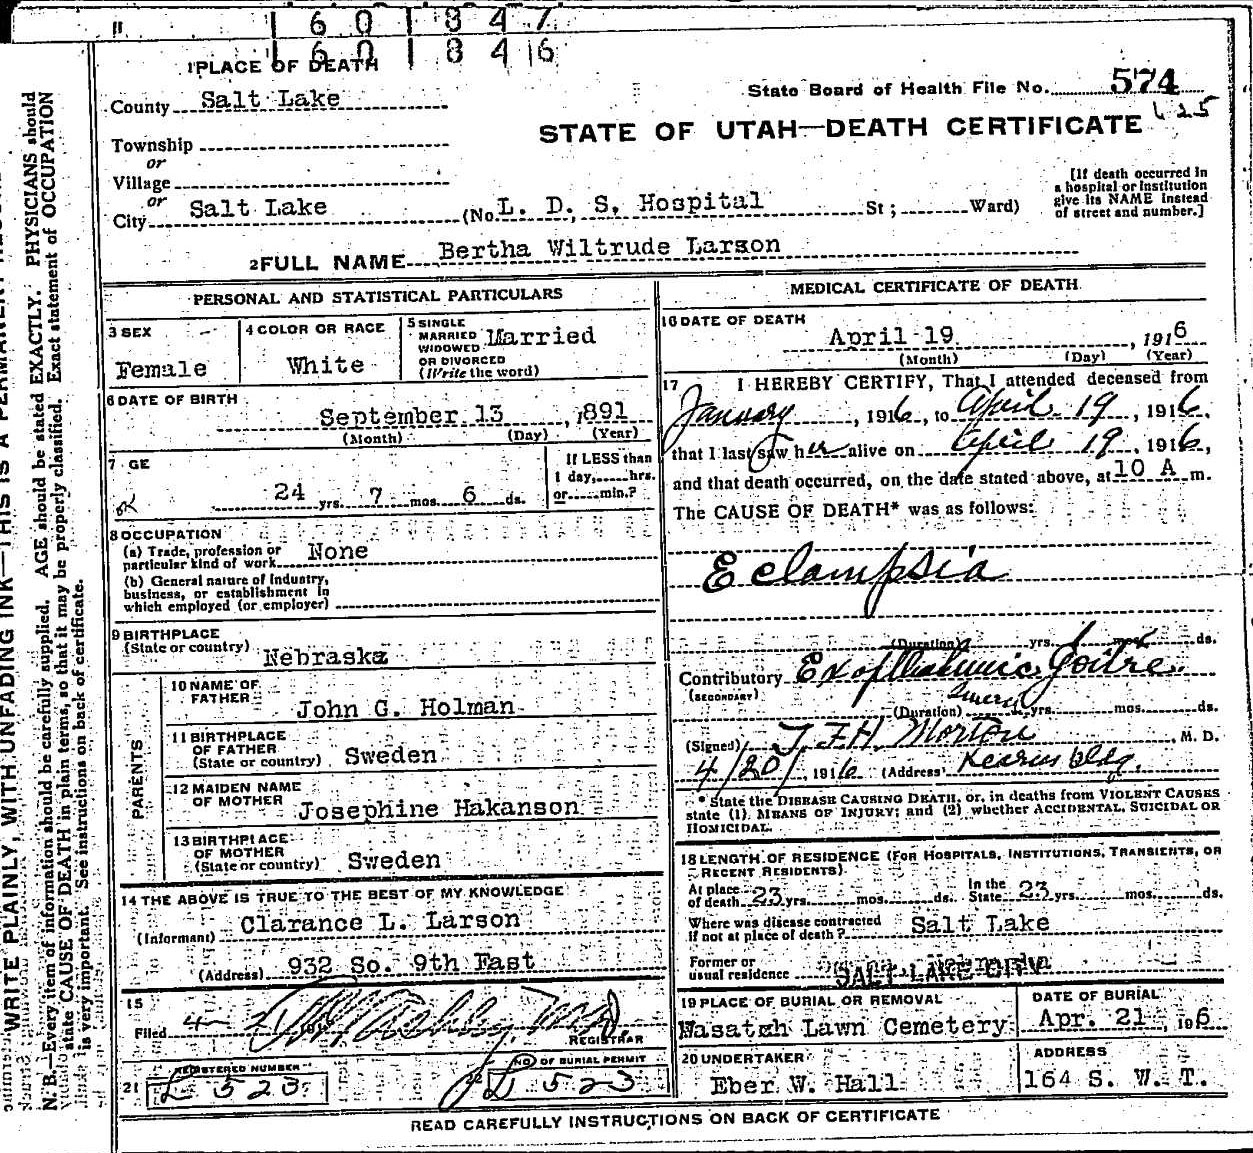 1 6 0 1 8 4 7
1 6 0 1 8 4 6
1 PLACE OF DEATH
State Board of Health File No. 574
625
County Salt Lake
STATE OF UTAH—DEATH CERTIFICATE
Township
or
Village
or
City Salt Lake (No. L. D. S. Hospital St; Ward)
[If death occurred in
a hospital or institution
give its NAME instead
of street and number.]
2 FULL NAME Bertha Wiltrude Larson
PERSONAL AND STATISTICAL PARTICULARS
3 SEX
Female
4 COLOR OR RACE
White
5 SINGLE
MARRIED
WIDOWED
OR DIVORCED
(Write the word)
Married
6 DATE OF BIRTH
September 13, 1891
(Month) (Day) (Year)
7 GE
24 yrs. 7 mos. 6 ds.
If LESS than
1 day, hrs.
or min.?
OK
8 OCCUPATION
(a) Trade, profession or
particular kind of work None
(b) General nature of Industry,
business, or establishment in
which employed (or employer)
9 BIRTHPLACE
(State or country) Nebraska
PARENTS
10 NAME OF
FATHER John G. Holman
11 BIRTHPLACE
OF FATHER
(State or country) Sweden
12 MAIDEN NAME
OF MOTHER Josephine Hakanson
13 BIRTHPLACE
OF MOTHER
(State or country) Sweden
14 THE ABOVE IS TRUE TO THE BEST OF MY KNOWLEDGE
(Informant) Clarance L. Larson
(Address) 932 So. 9th East
15
Filed 4
REGISTRAR
21 REGISTERED NUMBER
L 523
22 NO OF BURIAL PERMIT
L 523
MEDICAL CERTIFICATE OF DEATH
16 DATE OF DEATH
April 19, 1916
(Month) (Day) (Year)
17 I HEREBY CERTIFY, That I attended deceased from
January, 1916, to April 19, 1916,
that I last saw her alive on April 19, 1916,
and that death occurred, on the date stated above, at 10 A m.
The CAUSE OF DEATH* was as follows:
Eclampsia
(Duration) yrs. mos. ds.
Contributory Exopthalmic Goitre
(SECONDARY)
(Duration) yrs. mos. ds.
(Signed) T. F. H. Morton, M. D.
4/20/ 1916 (Address) Kearns bldg.
* State the DISEASE CAUSING DEATH, or, in deaths from VIOLENT CAUSES
state (1) MEANS OF INJURY; and (2) whether ACCIDENTAL, SUICIDAL OR
HOMICIDAL.
18 LENGTH OF RESIDENCE (FOR HOSPITALS, INSTITUTIONS, TRANSIENTS, OR
RECENT RESIDENTS)
At place
of death 23 yrs. mos. ds.
In the
State 23 yrs. mos. ds.
Where was disease contracted
if not at place of death? Salt Lake
Former or
usual residence SALT LAKE CITY
19 PLACE OF BURIAL OR REMOVAL
Wasatch Lawn Cemetery
DATE OF BURIAL
Apr. 21, 1916
20 UNDERTAKER
Eber W. Hall
ADDRESS
164 S. W. T.
READ CAREFULLY INSTRUCTIONS ON BACK OF CERTIFICATE
WRITE PLAINLY, WITH UNFADING INK—THIS IS A PERMANENT
N. B.—Every item of information should be carefully supplied. AGE should be stated EXACTLY. PHYSICIANS should
state CAUSE OF DEATH in plain terms, so that it may be properly classified. Exact statement of OCCUPATION
is very important. See instructions on back of certificate.